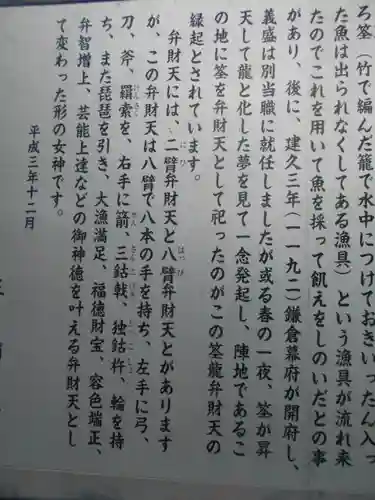 ろ筌(竹で編んだ籠で水中につけておきいったん入っ
た魚は出られなくしてある漁具)という漁具が流れ来
たのでこれを用いて魚を採って飢えをしのいだとの事
があり、後に 建久三年(一一九二)鎌倉幕府が開府し、
義盛は別当職に就任しましたが或る春の一夜、筌が昇
天して龍と化した夢を見て一念発起し、陣地であるこ
の地に筌を弁財天として祀ったのがこの筌龍弁財天の
縁起とされています。
弁財天には、二臂弁財天と八臂弁財天とがあります
が、この弁財天は八臂で八本の手を持ち、左手に弓、
刀、斧、羂索を、右手に箭、三鈷戟、独鈷杵、輪を持
ち、また琵琶を引き、大漁満足、福徳財宝、容色端正、
弁智増上、芸能上達などの御神徳を叶える弁財天とし
て変わった形の女神です。
平成三年十二月